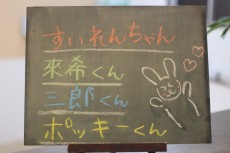 すいれんちゃん
來希くん
三郎くん
ポッキーくん